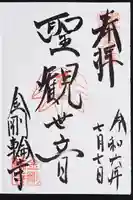 奉拝
令和六年
七月七日
聖観世音
金剛輪寺